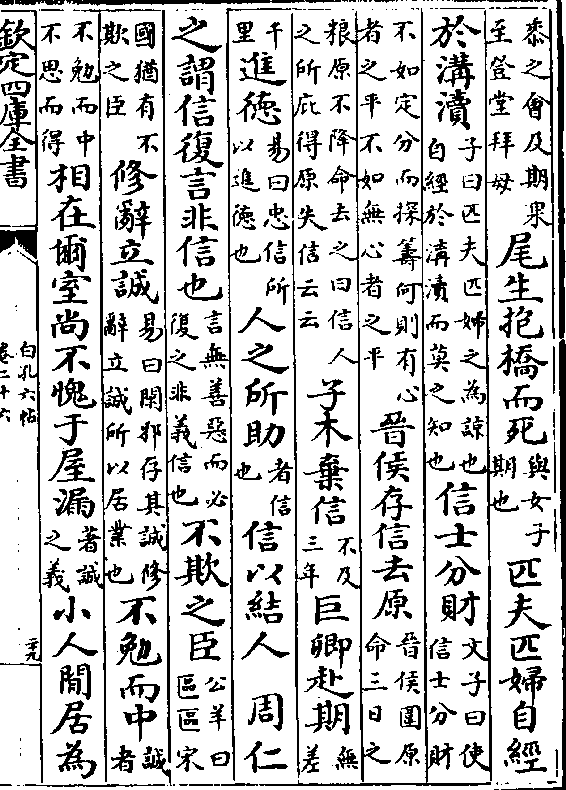 黍之會及期果至登堂拜母尾生抱橋而死與女子期也匹夫匹婦自經
於溝瀆子曰匹夫匹婦之為諒也自經於溝瀆而莫之知也信士分財文子曰使信士分財
不如定分而探籌何則有心者之平不如無心者之平晉侯存信去原晉侯圍原命三日之
糧原不降命去之曰信人之所庇得原失信云云子木棄信不及三年巨卿赴期無差
千里進德易曰忠信所以進德也人之所助者信也信以結人 周仁
之謂信復言非信也言無善惡而必復之非義信也不欺之臣公羊曰區區宋
國猶有不欺之臣修辭立誠易曰閑邪存其誠修辭立誠所以居業也不勉而中誠者
不勉而中不思而得相在爾室尚不愧于屋漏著誠之義小人閒居為
欽定四庫全書
白孔六帖
卷二十六